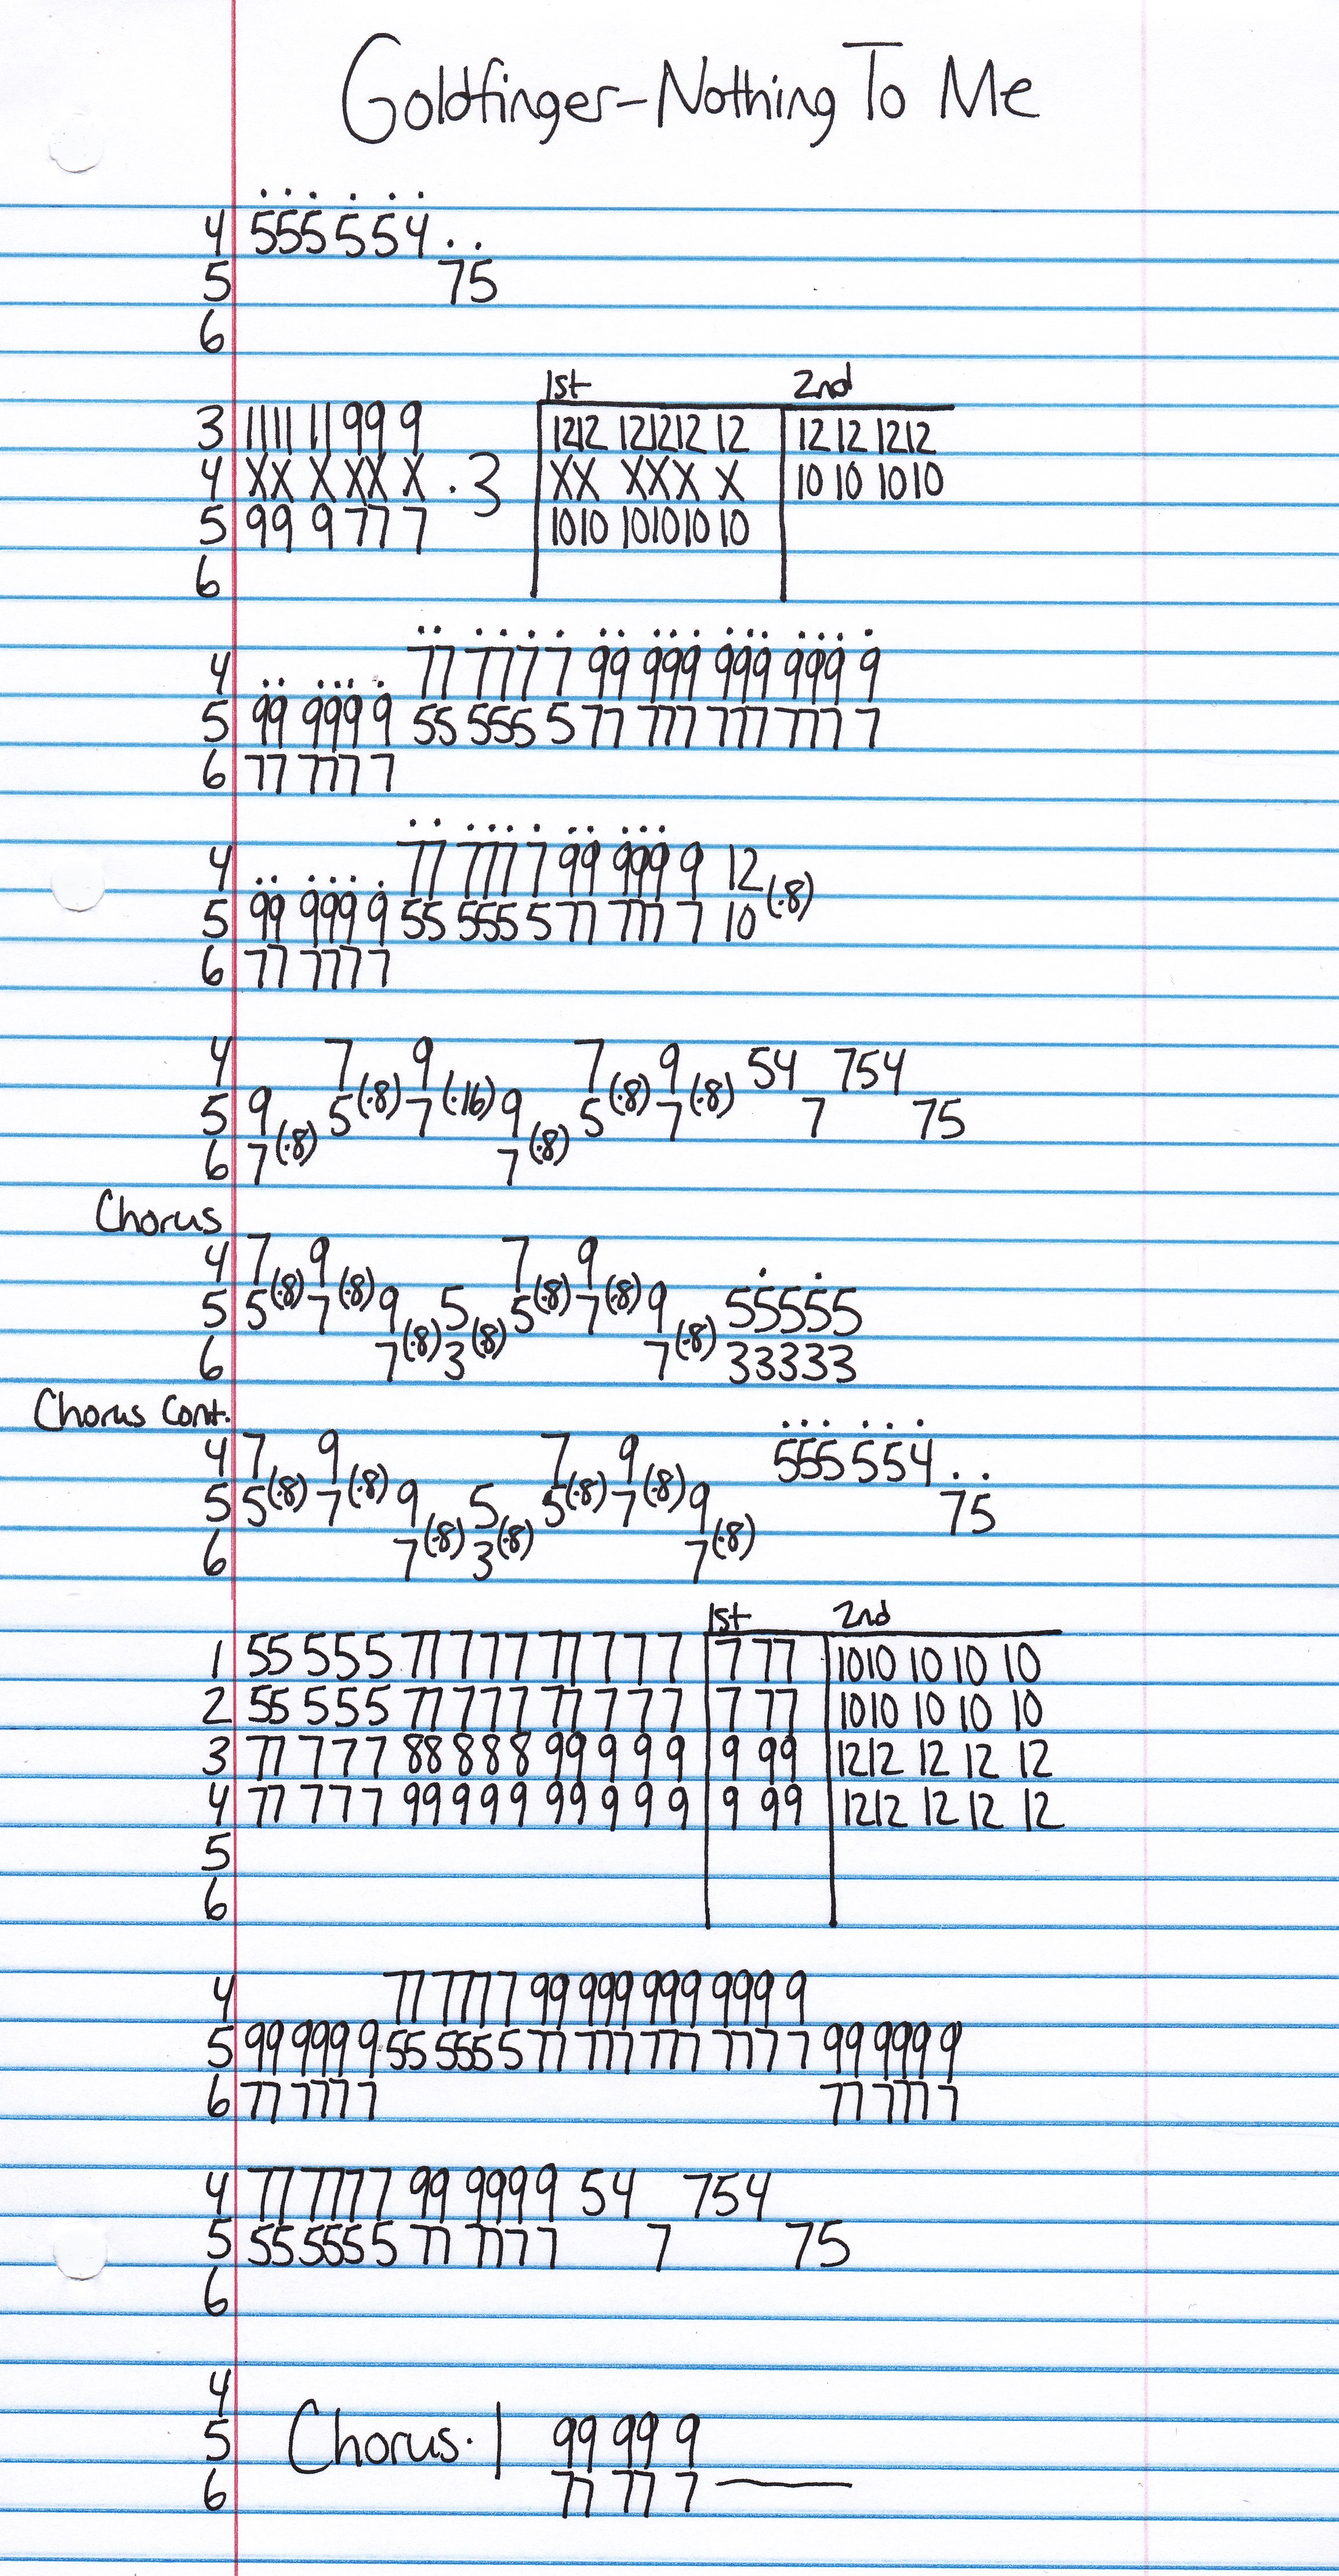 Goldfinger-Nothing To Me
4 555 5 5 4 . .
5 75
6
1st 2nd
3 1111 11 99 9 1212 121212 12 12 12 1212
4 XX X XX X .3 XX XXX X 10 10 1010
5 99 9 77 7 1010 101010 10
6
4 77 777 7 99 999 999 999 9
5 99 999 9 55 555 5 77 777 777 777 7
6 77 777 7
4 77 777 7 99 999 9 12
5 99 999 9 55 555 5 77 777 7 10 (.8)
6 77 777 7
4 7 9 7 9 54 754
5 9 5 (.8) 7 (.16) 9 5 (.8) 7 (.8) 7 75
6 7 (.8) 7 (.8)
Chorus
4 7 9 7 9
5 5 (.8) 7 (.8) 9 5 5 (.8) 7 (.8) 9 55555
6 7 (.8) 3 (.8) 7 (.8) 33333
Chorus Cont.
4 7 9 7 9 555 554 . .
5 5 (.8) 7 (.8) 9 5 5 (.8) 7 (.8) 9 75
6 7 (.8) 3 (.8) 7 (.8)
1st 2nd
1 55 5 5 5 77 7 7 7 77 7 7 7 7 77 1010 10 10 10
2 55 5 5 5 77 7 7 7 77 7 7 7 7 77 1010 10 10 10
3 77 7 7 7 88 8 8 8 99 9 9 9 9 99 1212 12 12 12
4 77 7 7 7 99 9 9 9 99 9 9 9 9 99 1212 12 12 12
5
6
4 77 777 7 99 999 999 999 9
5 99 999 9 55 555 5 77 777 777 777 7 99 999 9
6 77 777 7 77 777 7
4 77 777 7 99 999 9 54 754
5 55 555 5 77 777 7 7 75
6
4
5 Chorus. | 99 99 9
6 77 77 7